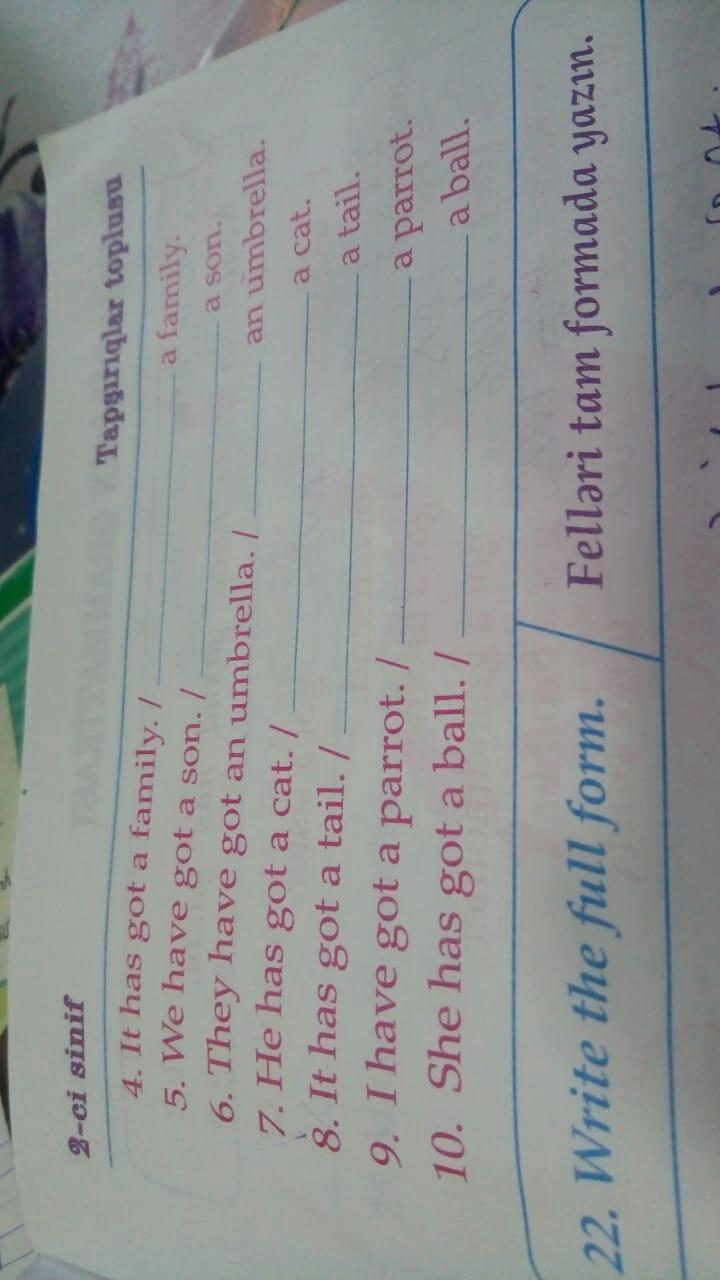 2-ci sinif Tapşırıqlar toplusu
4. It has got a family. / __________ a family.
5. We have got a son. / __________ a son.
6. They have got an umbrella. / __________ an umbrella.
7. He has got a cat. / __________ a cat.
8. It has got a tail. / __________ a tail.
9. I have got a parrot. / __________ a parrot.
10. She has got a ball. / __________ a ball.
22. Write the full form. / Felləri tam formada yazın.